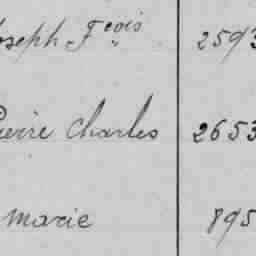 Joseph Fçois 2593
Pierre Charles 2653
Marie 895